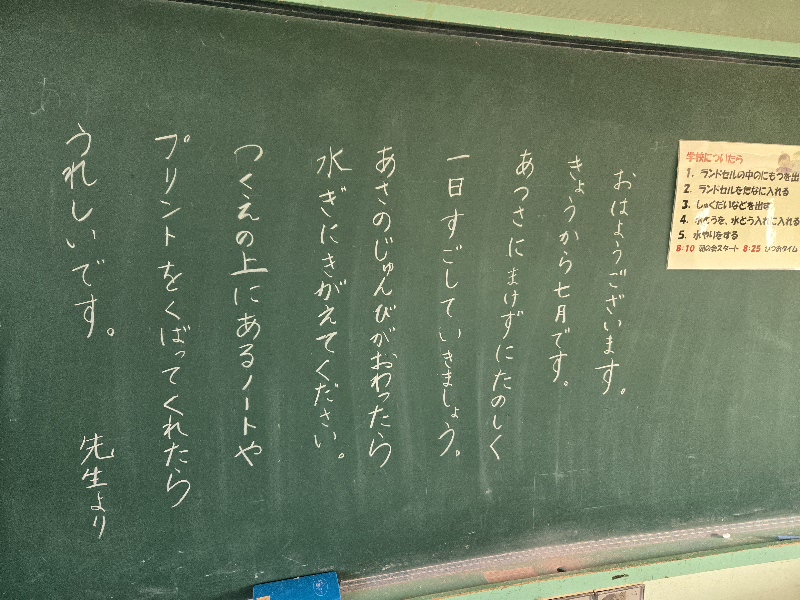 おはようございます。
きょうから七月です。
あつさにまけずにたのしく
一日すごしていきましょう。
あさのじゅんびがおわったら
水ぎにきがえてください。
つくえの上にあるノートや
プリントをくばってくれたら
うれしいです。
先生より
学校についたら
1. ランドセルの中のにもつを出
2. ランドセルをたなに入れる
3. しゅくだいなどを出す
4. 水とうを、水とう入れに入れる
5. 水やりをする
8:10 朝の会スタート 8:25